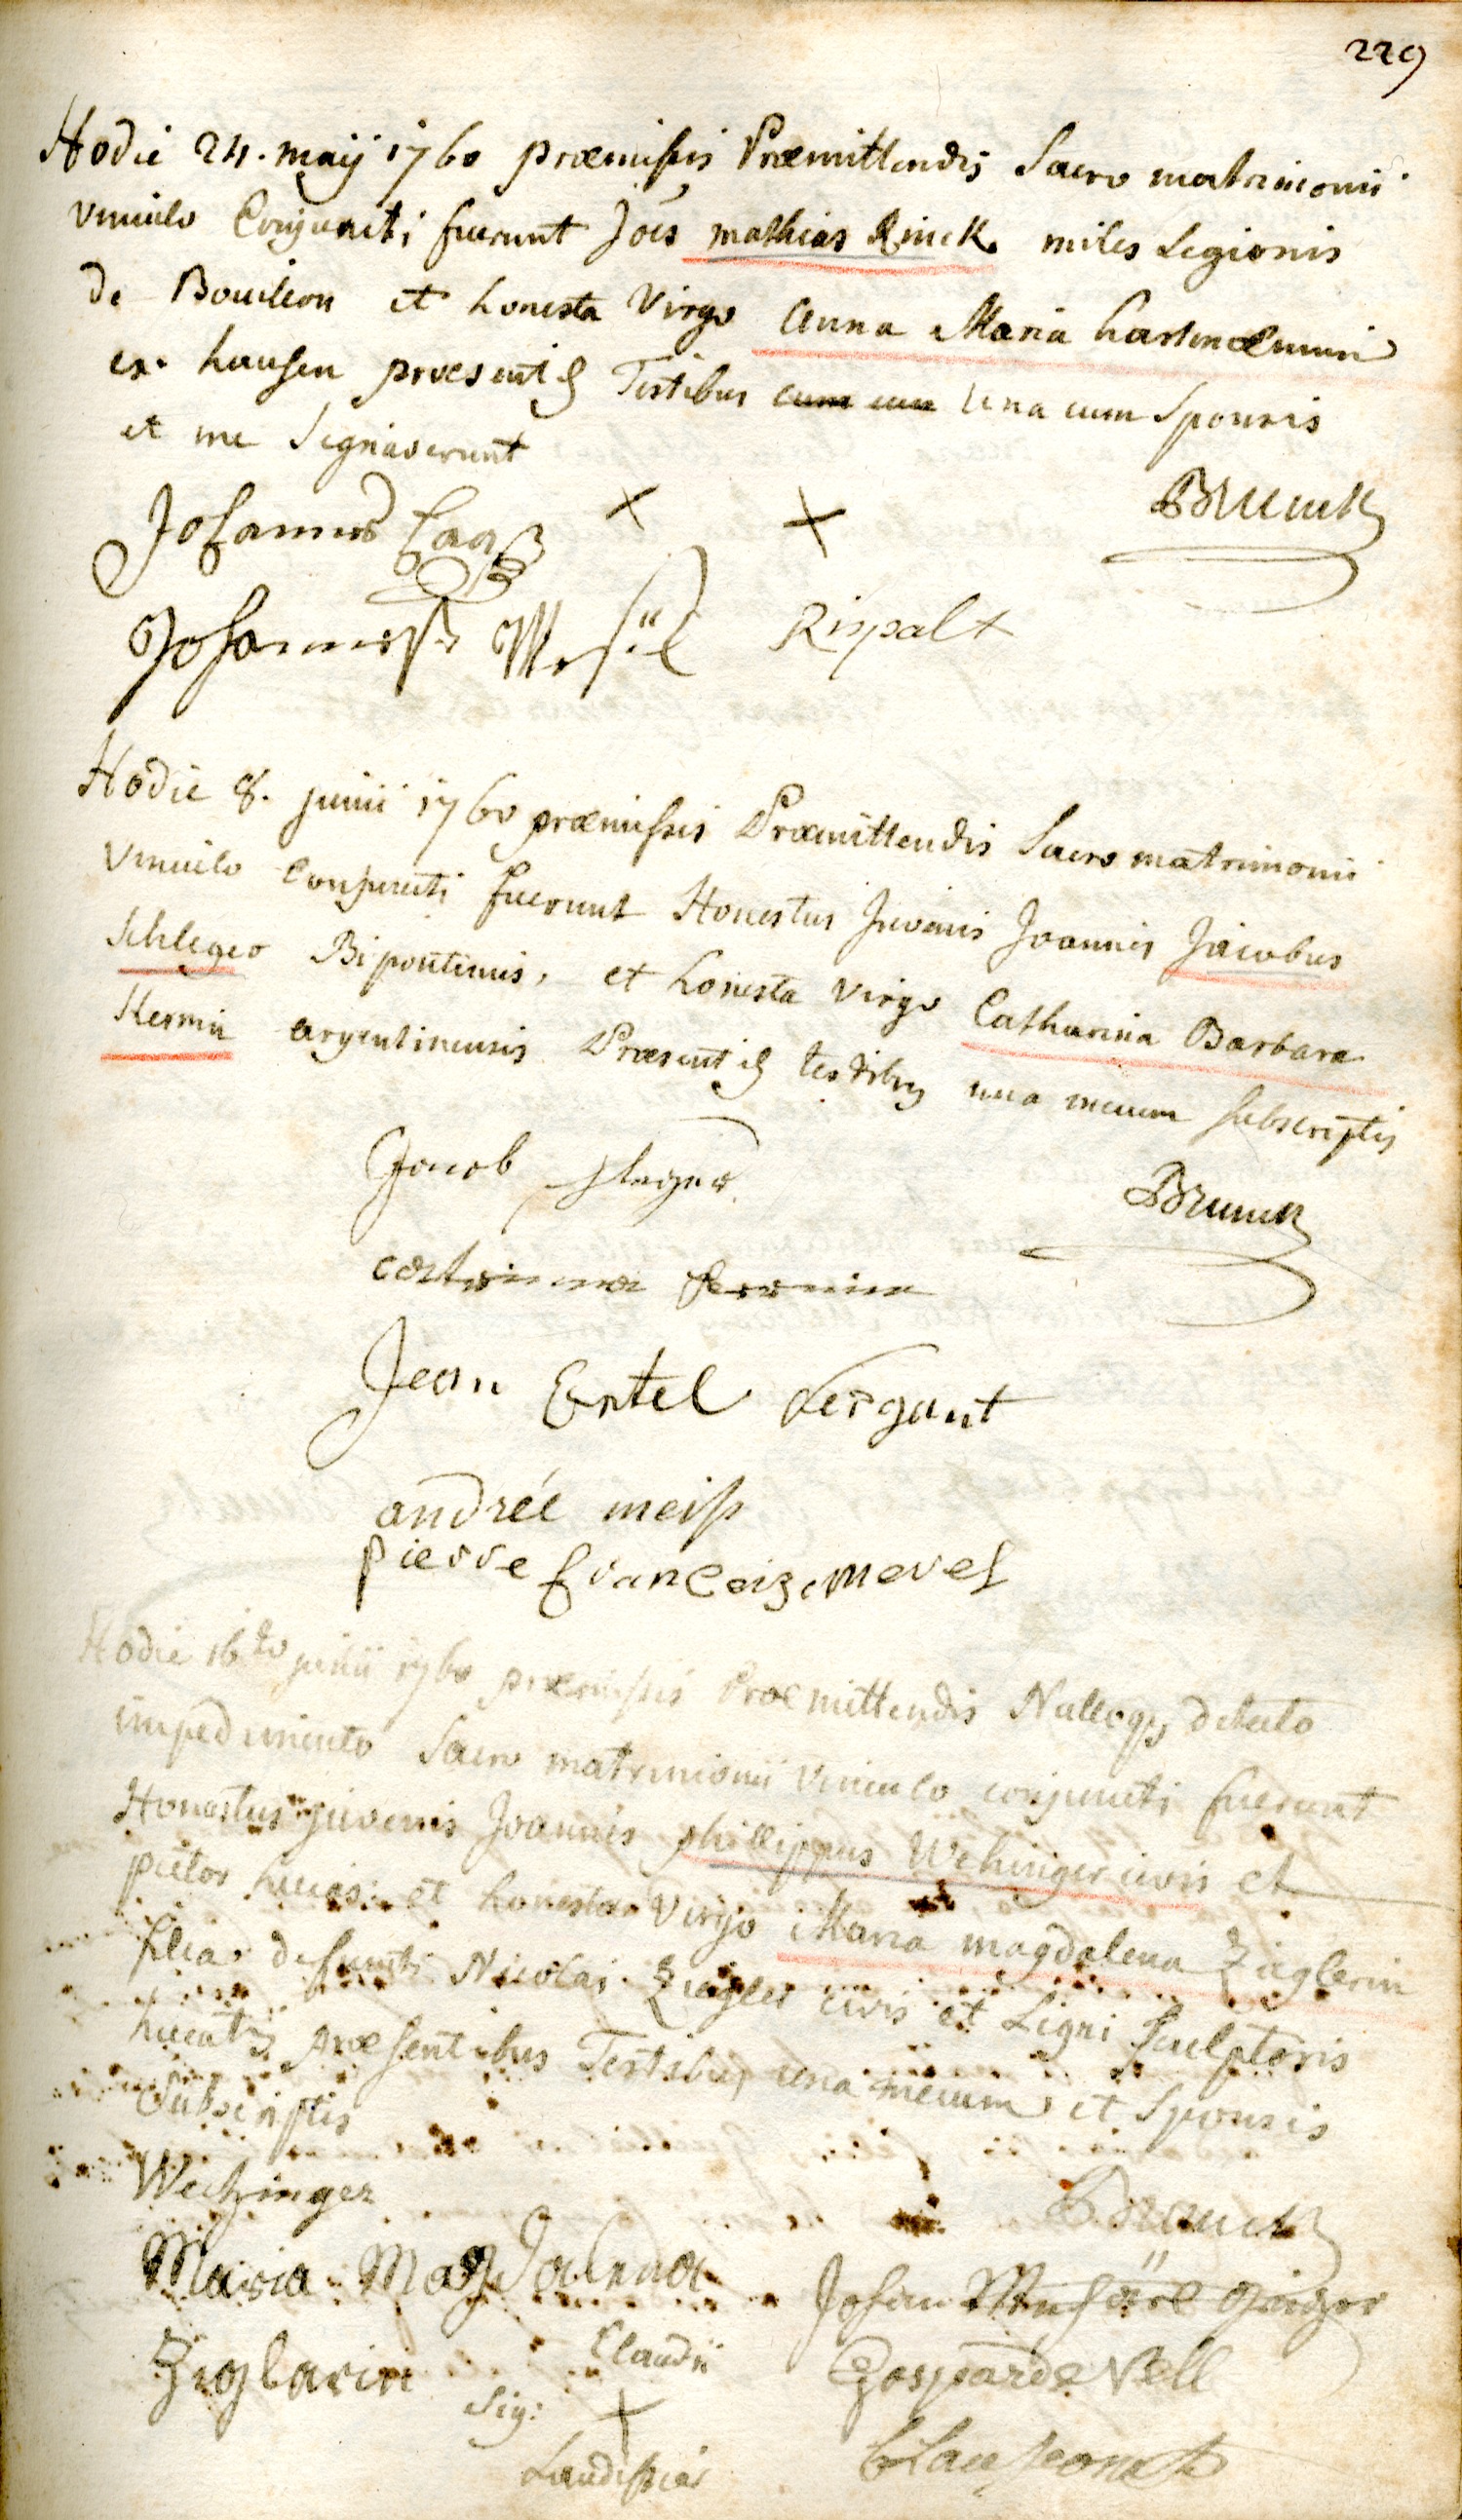 229
Hodie 24. maij 1760 præmissis Præmittendis Sacro matrimonii
vinculo Conjuncti fuerunt Jōes mathias Rinck miles Legionis
de Bouillon et honesta Virgo Anna Maria
ex hausen præsentib Testibus cum cum Una cum Sponsis
et me Signaverunt
Johannes
Brunck
Johannes
Rispalt
Hodie 8. junii 1760 præmissis Præmittendis Sacro matrimonii
vinculo Conjuncti fuerunt Honestus Juvenis Joannes Jacobus
Schleger Bipontinus, et honesta virgo Catharina Barbara
Hermin argentinensis Præsentib testibus una mecum subscriptis
Jacob
Brunck
Jean Ertel Sergant
andréé meiss
pierre francois morel
Hodie 16to junii 1760 præmissis Præmittendis Nulloqz detecto
impedimento Sacro matrimonii Vinculo conjuncti fuerunt
Honestus juvenis Joannes phillippus Wehinger civis et
pictor hucas et honesta Virgo Maria magdalena Zieglerin
filia defuncti Nicolai Ziegler civis et Ligni Sculptoris
præsentibus Testibus una mecum et Sponsis
Subscriptis
Wechinger
Brunck
Maria Magdalena
Johan
Ziglerin
Claudii
Sig: